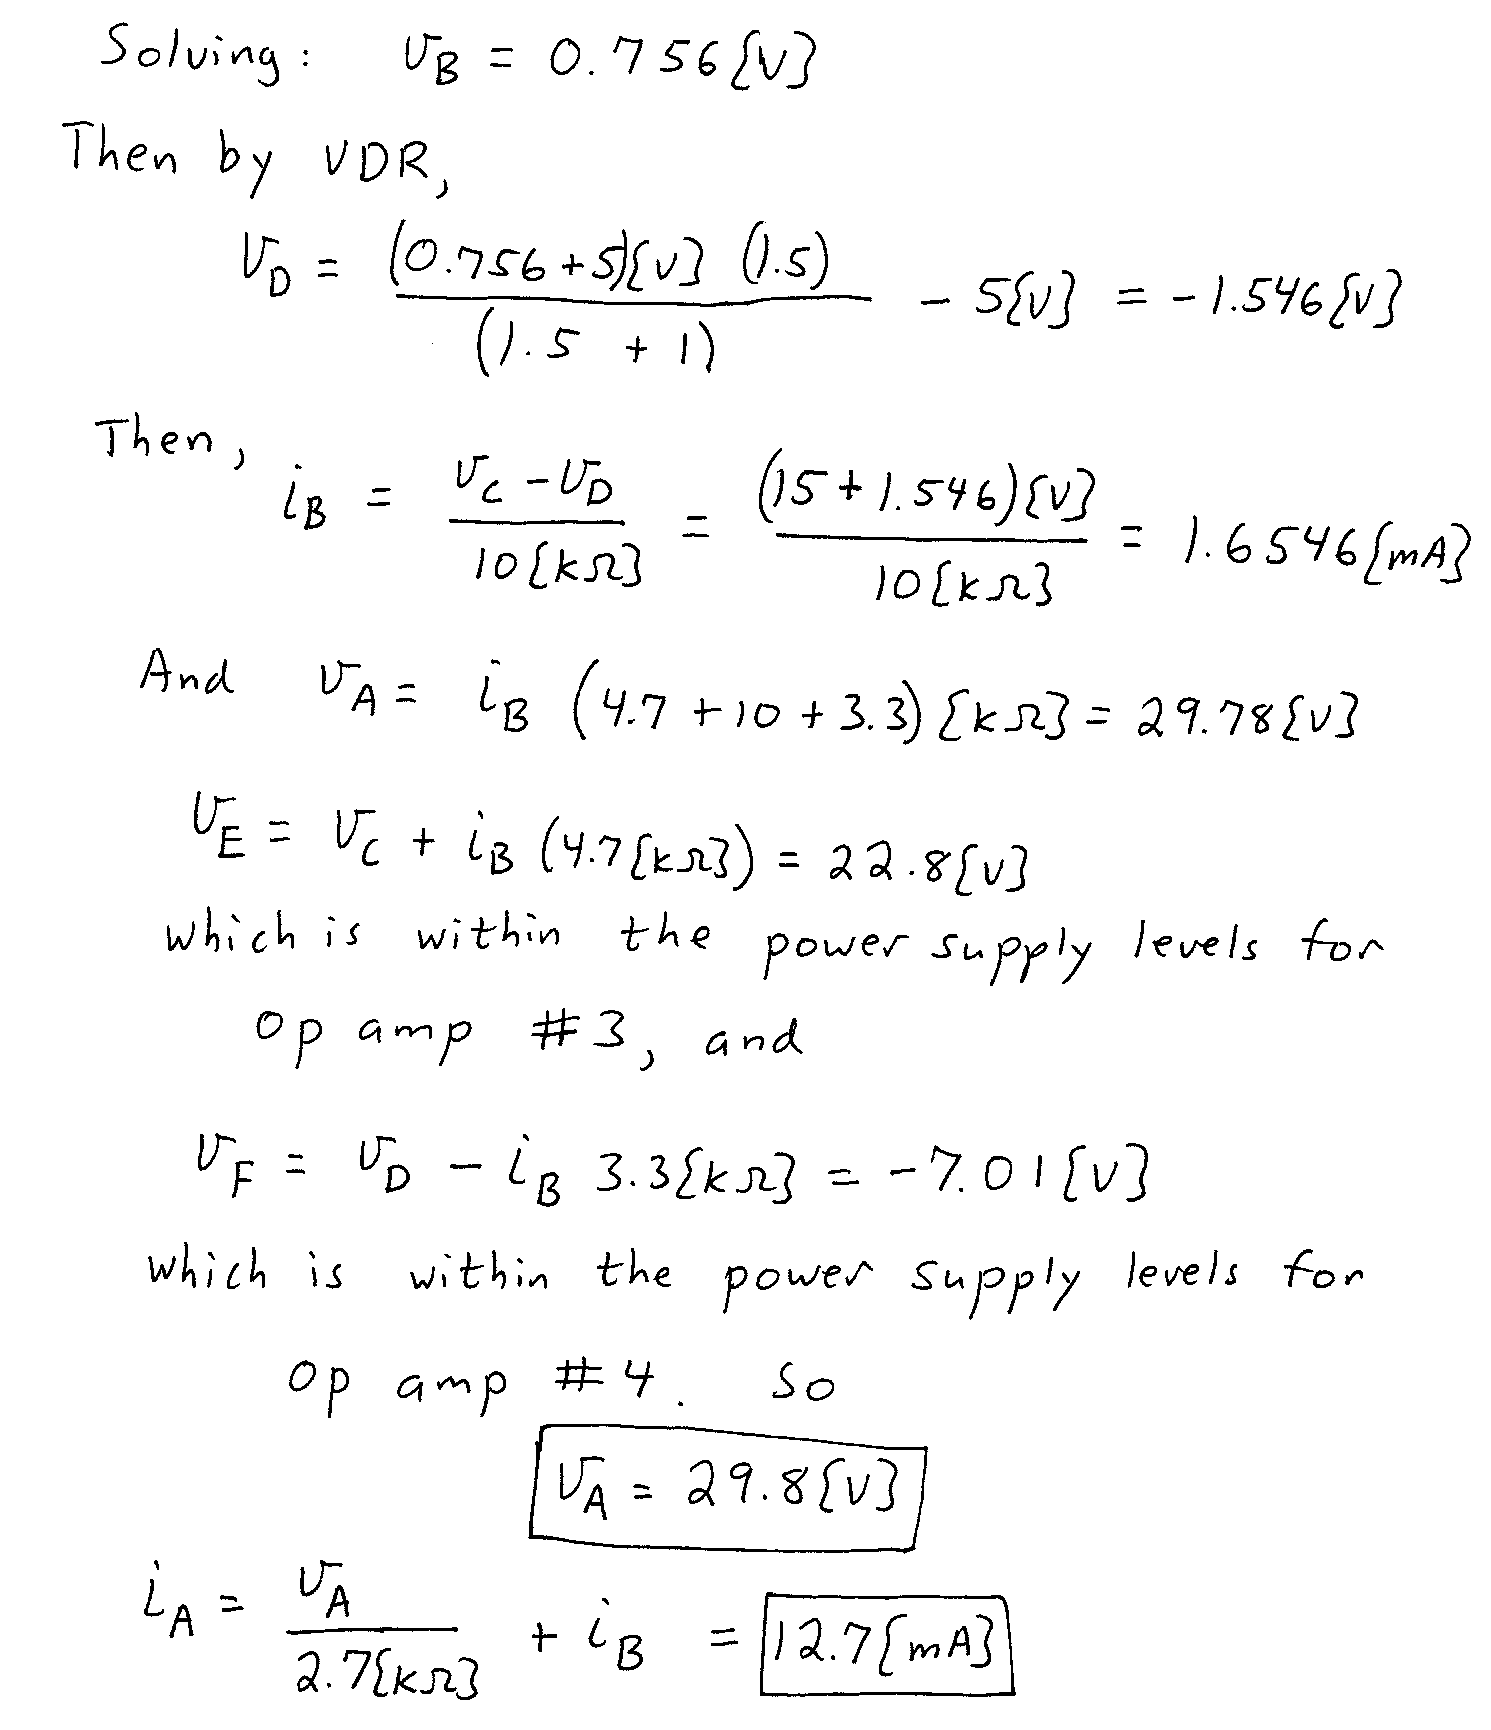 Solving: v_B = 0.756 {V}
Then by VDR,
v_D = (0.756 + 5){V} (1.5) / (1.5 + 1) - 5{V} = -1.546 {V}
Then, i_B = (v_C - v_D) / 10{kΩ} = (15 + 1.546){V} / 10{kΩ} = 1.6546 {mA}
And v_A = i_B (4.7 + 10 + 3.3) {kΩ} = 29.78 {V}
v_E = v_C + i_B (4.7 {kΩ}) = 22.8 {V}
which is within the power supply levels for
op amp #3, and
v_F = v_D - i_B 3.3 {kΩ} = -7.01 {V}
which is within the power supply levels for
op amp #4. So
v_A = 29.8 {V}
i_A = v_A / 2.7{kΩ} + i_B = 12.7 {mA}